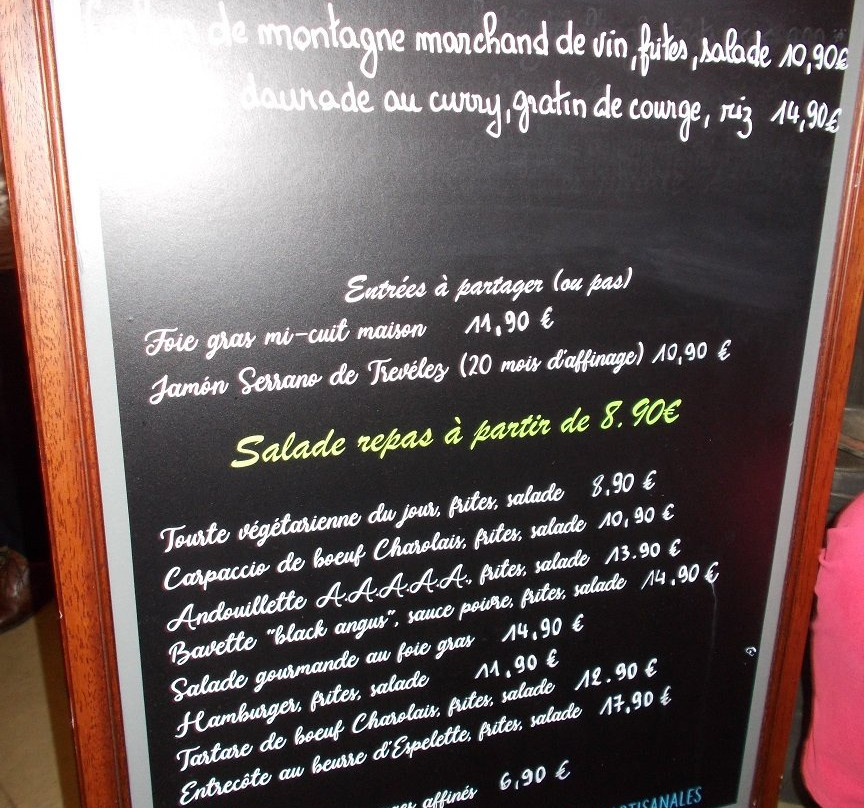 de montagne marchand de vin, frites, salade 10,90€
daurade au curry, gratin de courge, riz 14,90€
Entrées à partager (ou pas)
Foie gras mi-cuit maison 11,90 €
Jamón Serrano de Trevélez (20 mois d'affinage) 10,90 €
Salade repas à partir de 8.90€
Tourte végétarienne du jour, frites, salade 8,90 €
Carpaccio de boeuf Charolais, frites, salade 10,90 €
Andouillette A.A.A.A.A., frites, salade 13.90 €
Bavette "black angus", sauce poivre, frites, salade 14.90 €
Salade gourmande au foie gras 14.90 €
Hamburger, frites, salade 11,90 €
Tartare de boeuf Charolais, frites, salade 12.90 €
Entrecôte au beurre d'Espelette, frites, salade 17,90 €
affinés 6,90 €